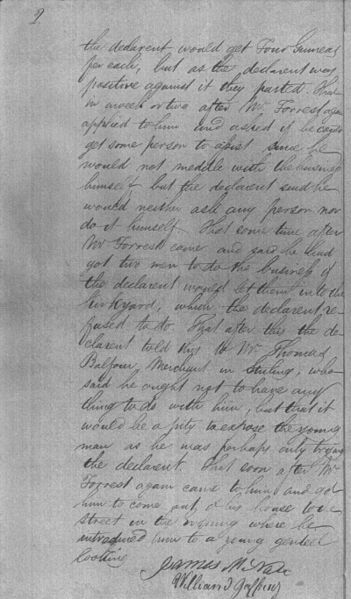 2
the declarent would get Four Guineas
per each, but as the declarent was
positive against it they parted. That
in a week or two after Mr. Forrest again
applied to him and asked if he could
get some person to assist since he
would not meddle with the business
himself but the declarent said he
would neither ask any person nor
do it himself. That some time after
Mr Forrest came and said he had
got two men to do the business if
the declarent would let them into the
kirkyard, which the declarent re-
fused to do. That after this the de-
clarent told this to Mr. Thomas
Balfour, Merchant in Stirling, who
said he ought not to have any
thing to do with him, but that it
would be a pity to expose the young
man as he was perhaps only trying
the declarent. That soon after Mr
Forrest again came to him and got
him to come out of his house to the
street in the evening where he
introduced him to a young genteel
looking
James McNab
William